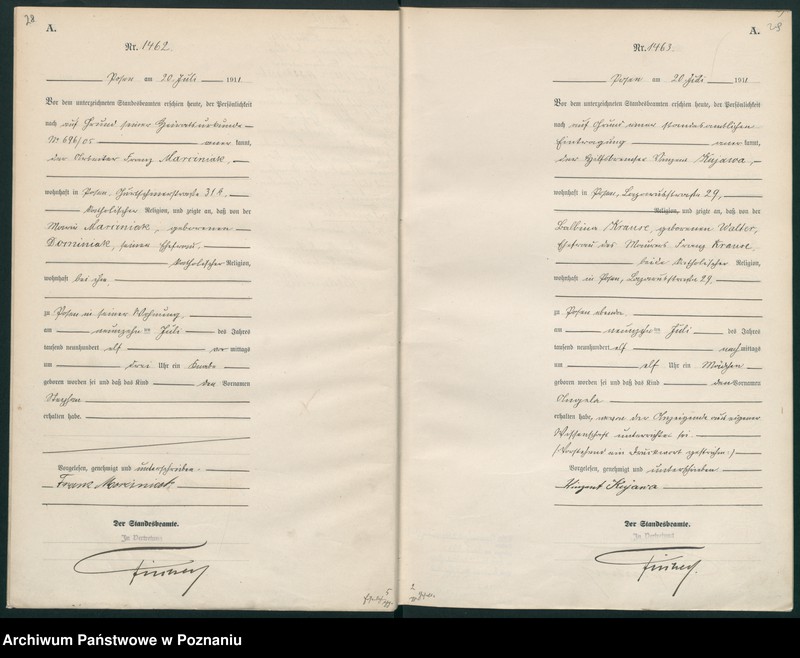 28
A.
Nr. 1462.
Posen am 20. Juli 1911
Vor dem unterzeichneten Standesbeamten erschien heute, der Persönlichkeit
nach auf Grund seiner Heiratsurkunde
No 696/05 kannt,
der Arbeiter Franz Marciniak,
wohnhaft in Posen, 31a,
katholischer Religion, und zeigte an, daß von der
Maria Marciniak, geborenen
Dominiak, seiner Ehefrau,
katholischer Religion,
wohnhaft bei ihm,
zu Posen in seiner Wohnung,
am neunzehnten Juli des Jahres
tausend neunhundert elf vormittags
um drei Uhr ein Knabe
geboren worden sei und daß das Kind den Vornamen
Stephan
erhalten habe.
Vorgelesen, genehmigt und unterschrieben.
Franz Marciniak
Der Standesbeamte.
In Vertretung
A.
Nr. 1463.
Posen am 20. Juli 1911
Vor dem unterzeichneten Standesbeamten erschien heute, der Persönlichkeit
nach auf Grund einer standesamtlichen
Eintragung kannt,
der Hilfsbremser Vinzent Kujawa,
wohnhaft in Posen, Lazarusstraße 29,
Religion, und zeigte an, daß von der
Balbina Krause, geborenen Walter,
Ehefrau des Maurers Franz Krause,
beide katholischer Religion,
wohnhaft in Posen, Lazarusstraße 29,
zu Posen ebenda,
am neunzehnten Juli des Jahres
tausend neunhundert elf nachmittags
um elf Uhr ein Mädchen
geboren worden sei und daß das Kind den Vornamen
Angela
erhalten habe, wovon der Anzeigende aus eigener
Wissenschaft unterrichtet sei.
(Vorstehend ein Druckwort gestrichen.)
Vorgelesen, genehmigt und unterschrieben
Vinzent Kujawa
Der Standesbeamte.
In Vertretung
Archiwum Państwowe w Poznaniu